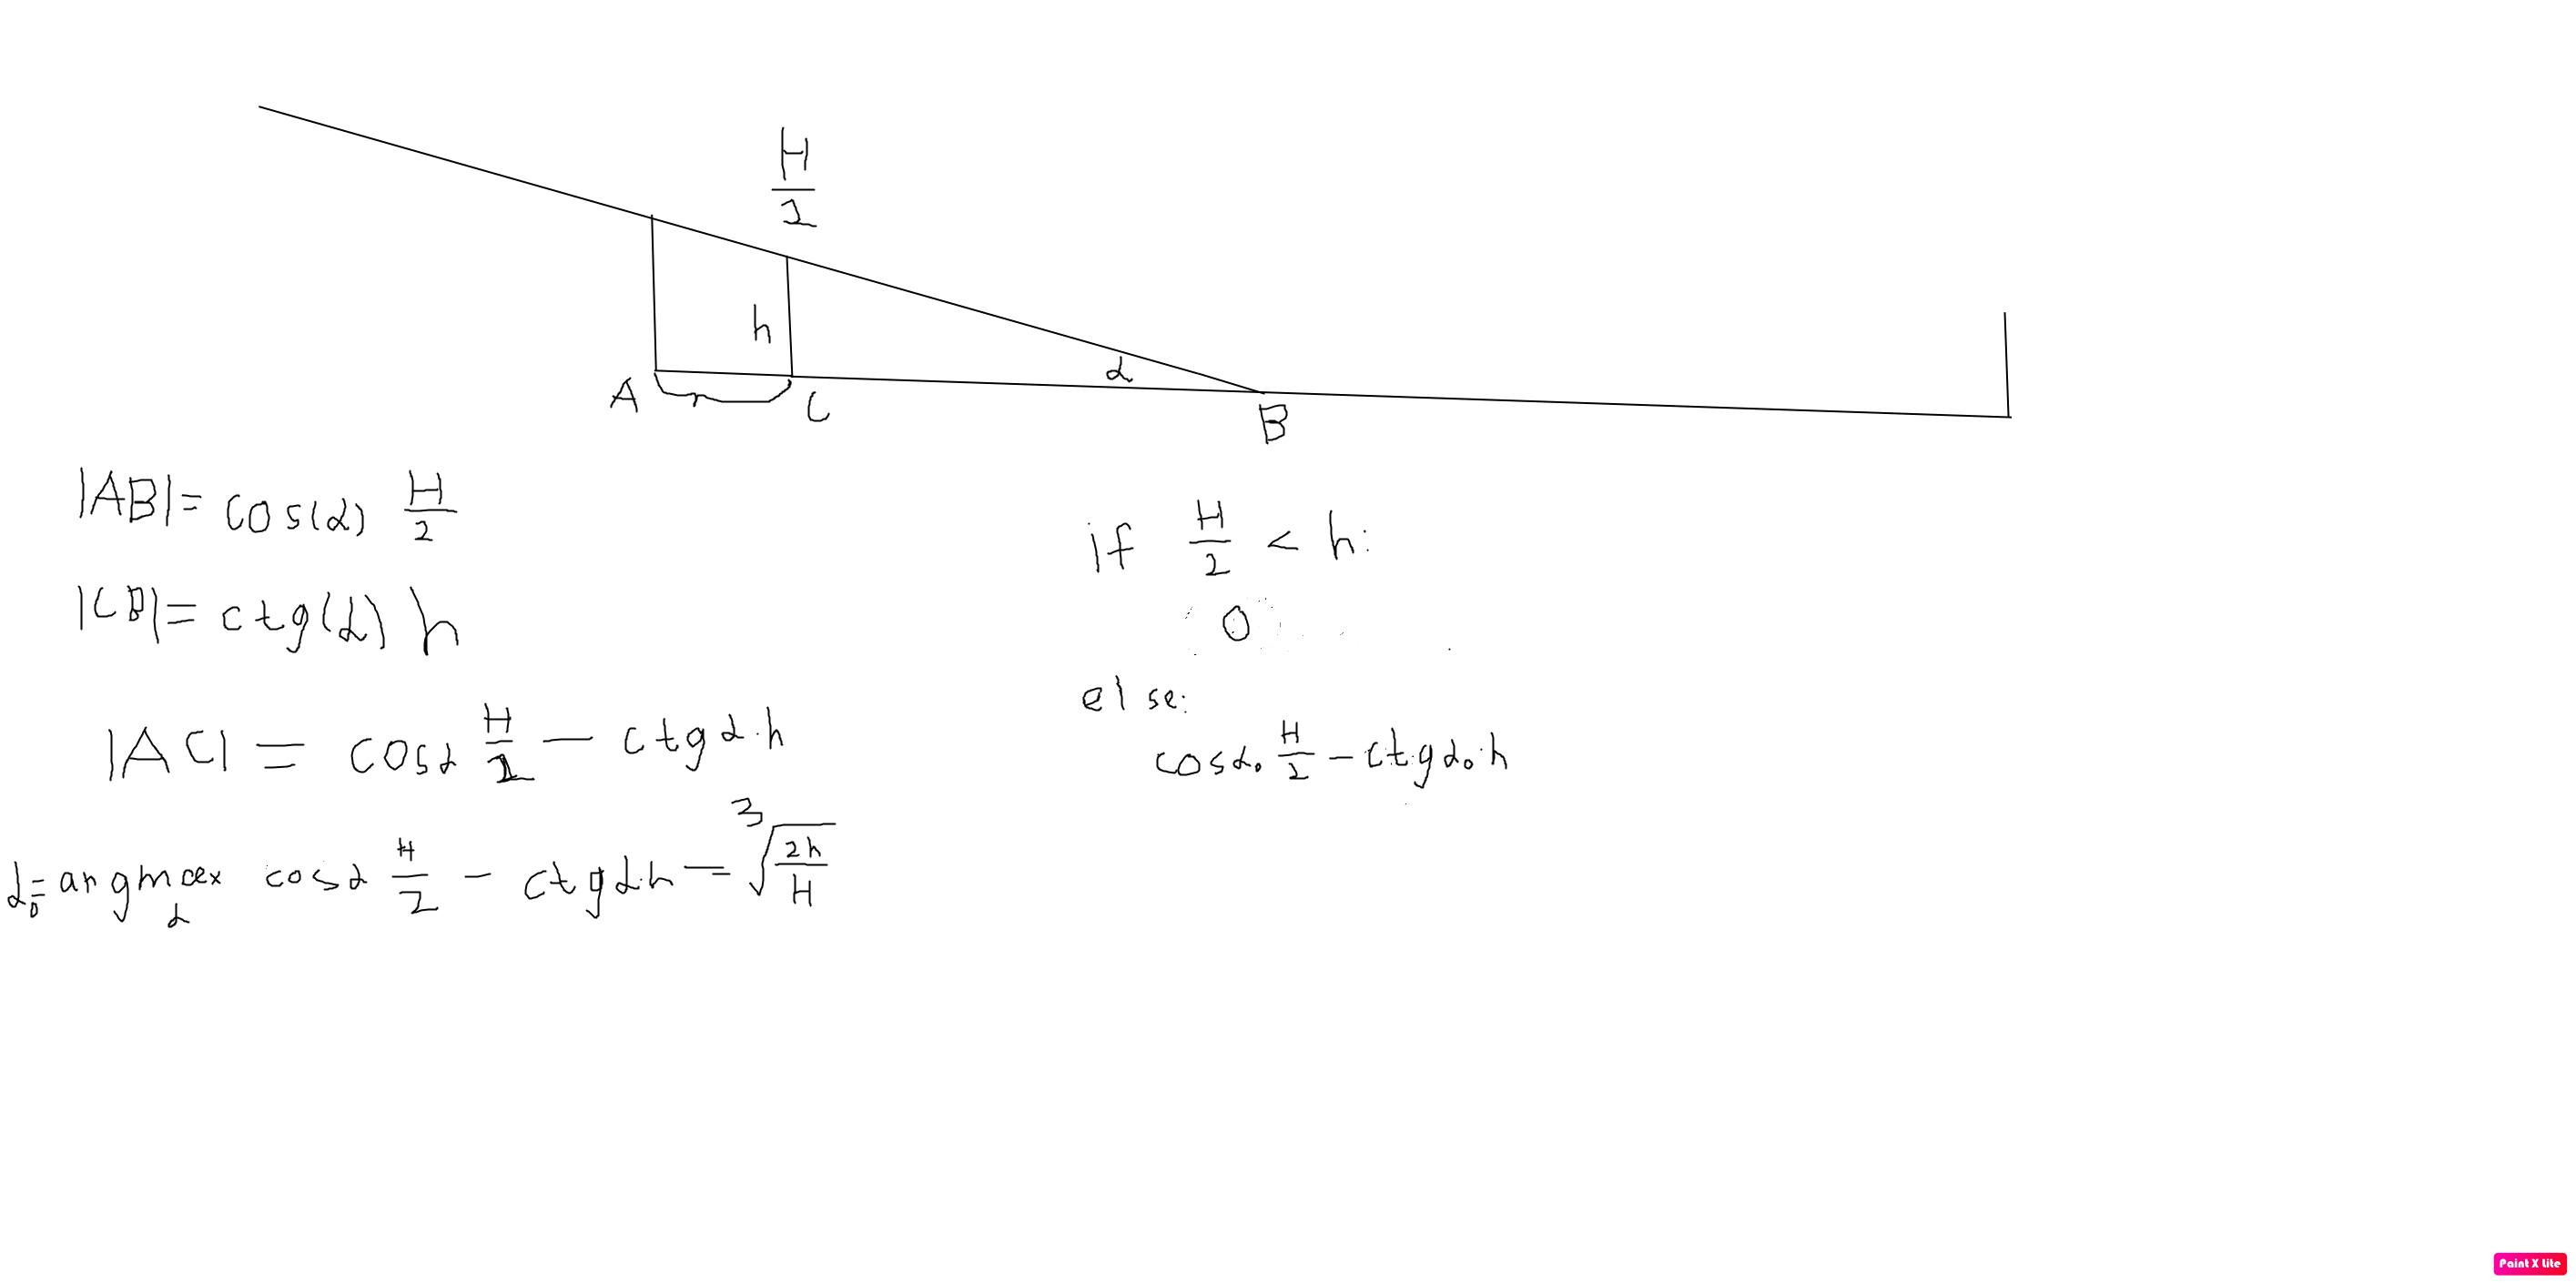 H/2
h
α
A r C
B
|AB| = cos(α) H/2
|CB| = ctg(α) h
|AC| = cosα H/2 − ctgα·h
α₀ = argmax α cosα H/2 − ctgα·h = ∛(2h/H)
if H/2 < h:
0
else:
cosα₀ H/2 − ctgα₀·h
Paint X Lite